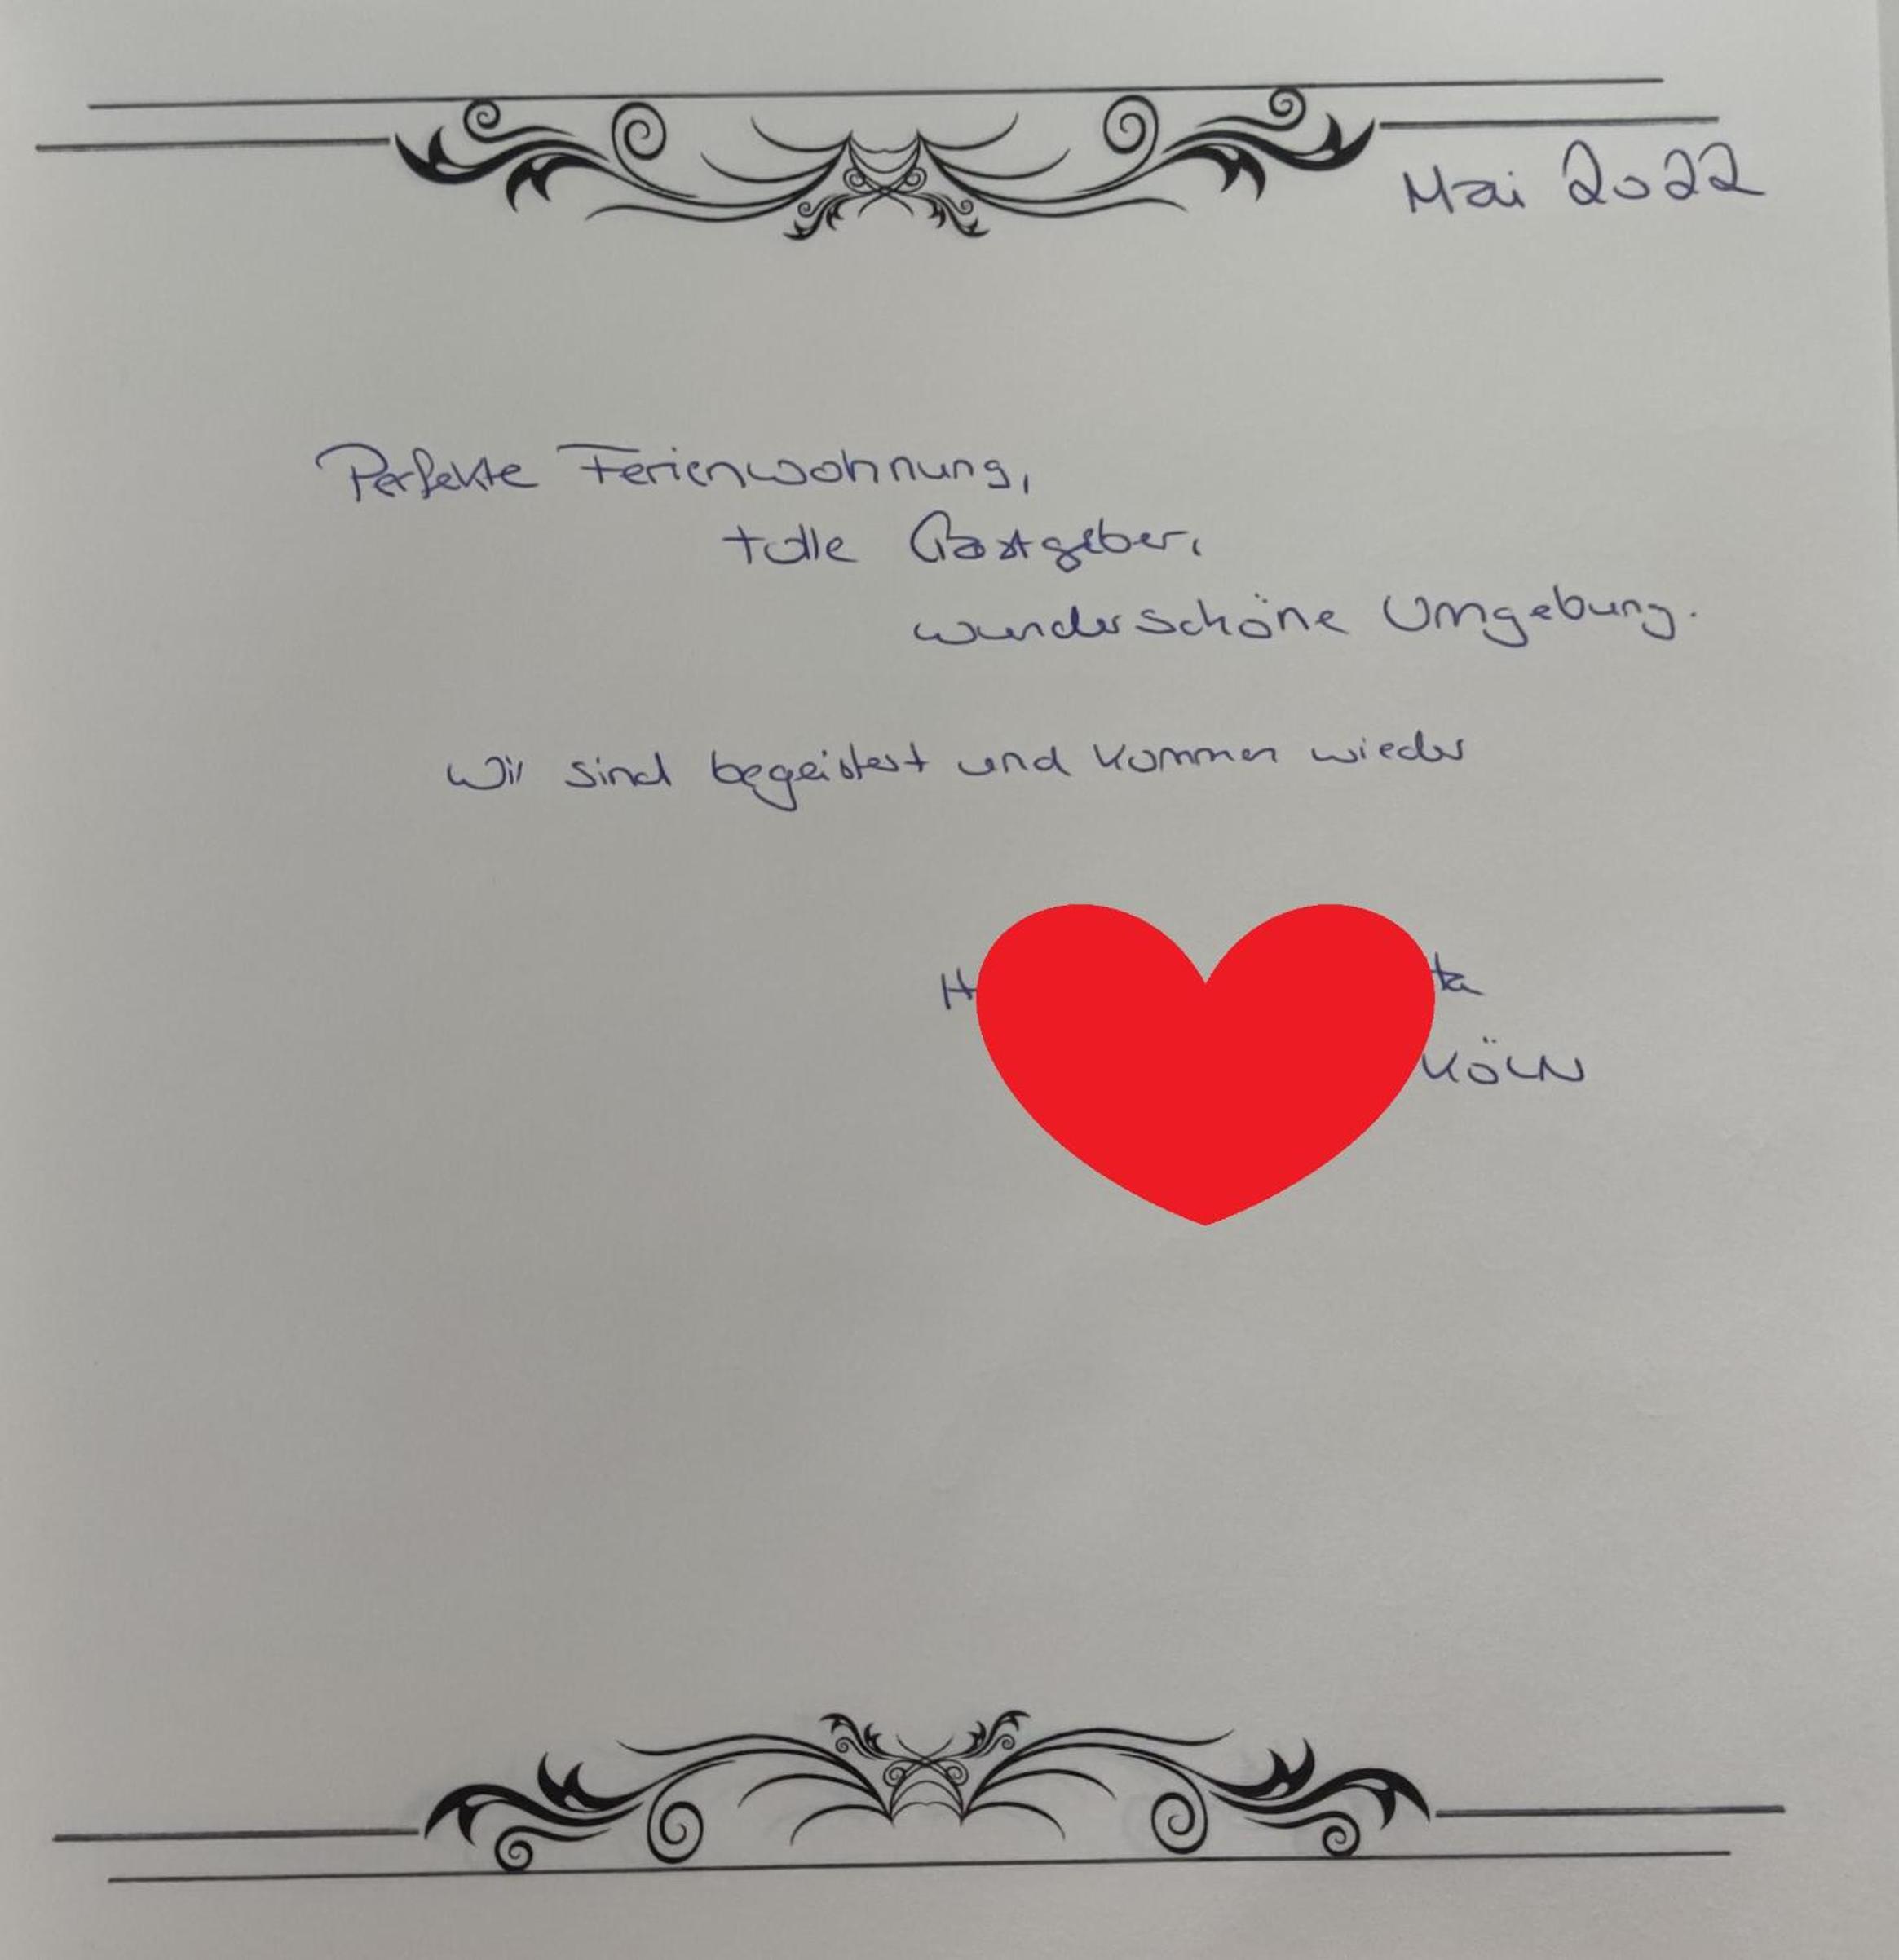 Mai 2022
Perfekte Ferienwohnung,
tolle Gastgeber,
wunderschöne Umgebung.
Wir sind begeistert und kommen wieder
KÖLN